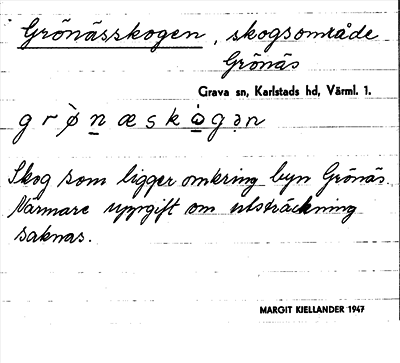 Grönässkogen, skogsområde
Grönäs
Grava sn, Karlstads hd, Värml. l.
g r ö̀ n æ s k ȯ g ə n
Skog som ligger omkring byn Grönäs.
Närmare uppgift om utsträckning
saknas.
MARGIT KIELLANDER 1947